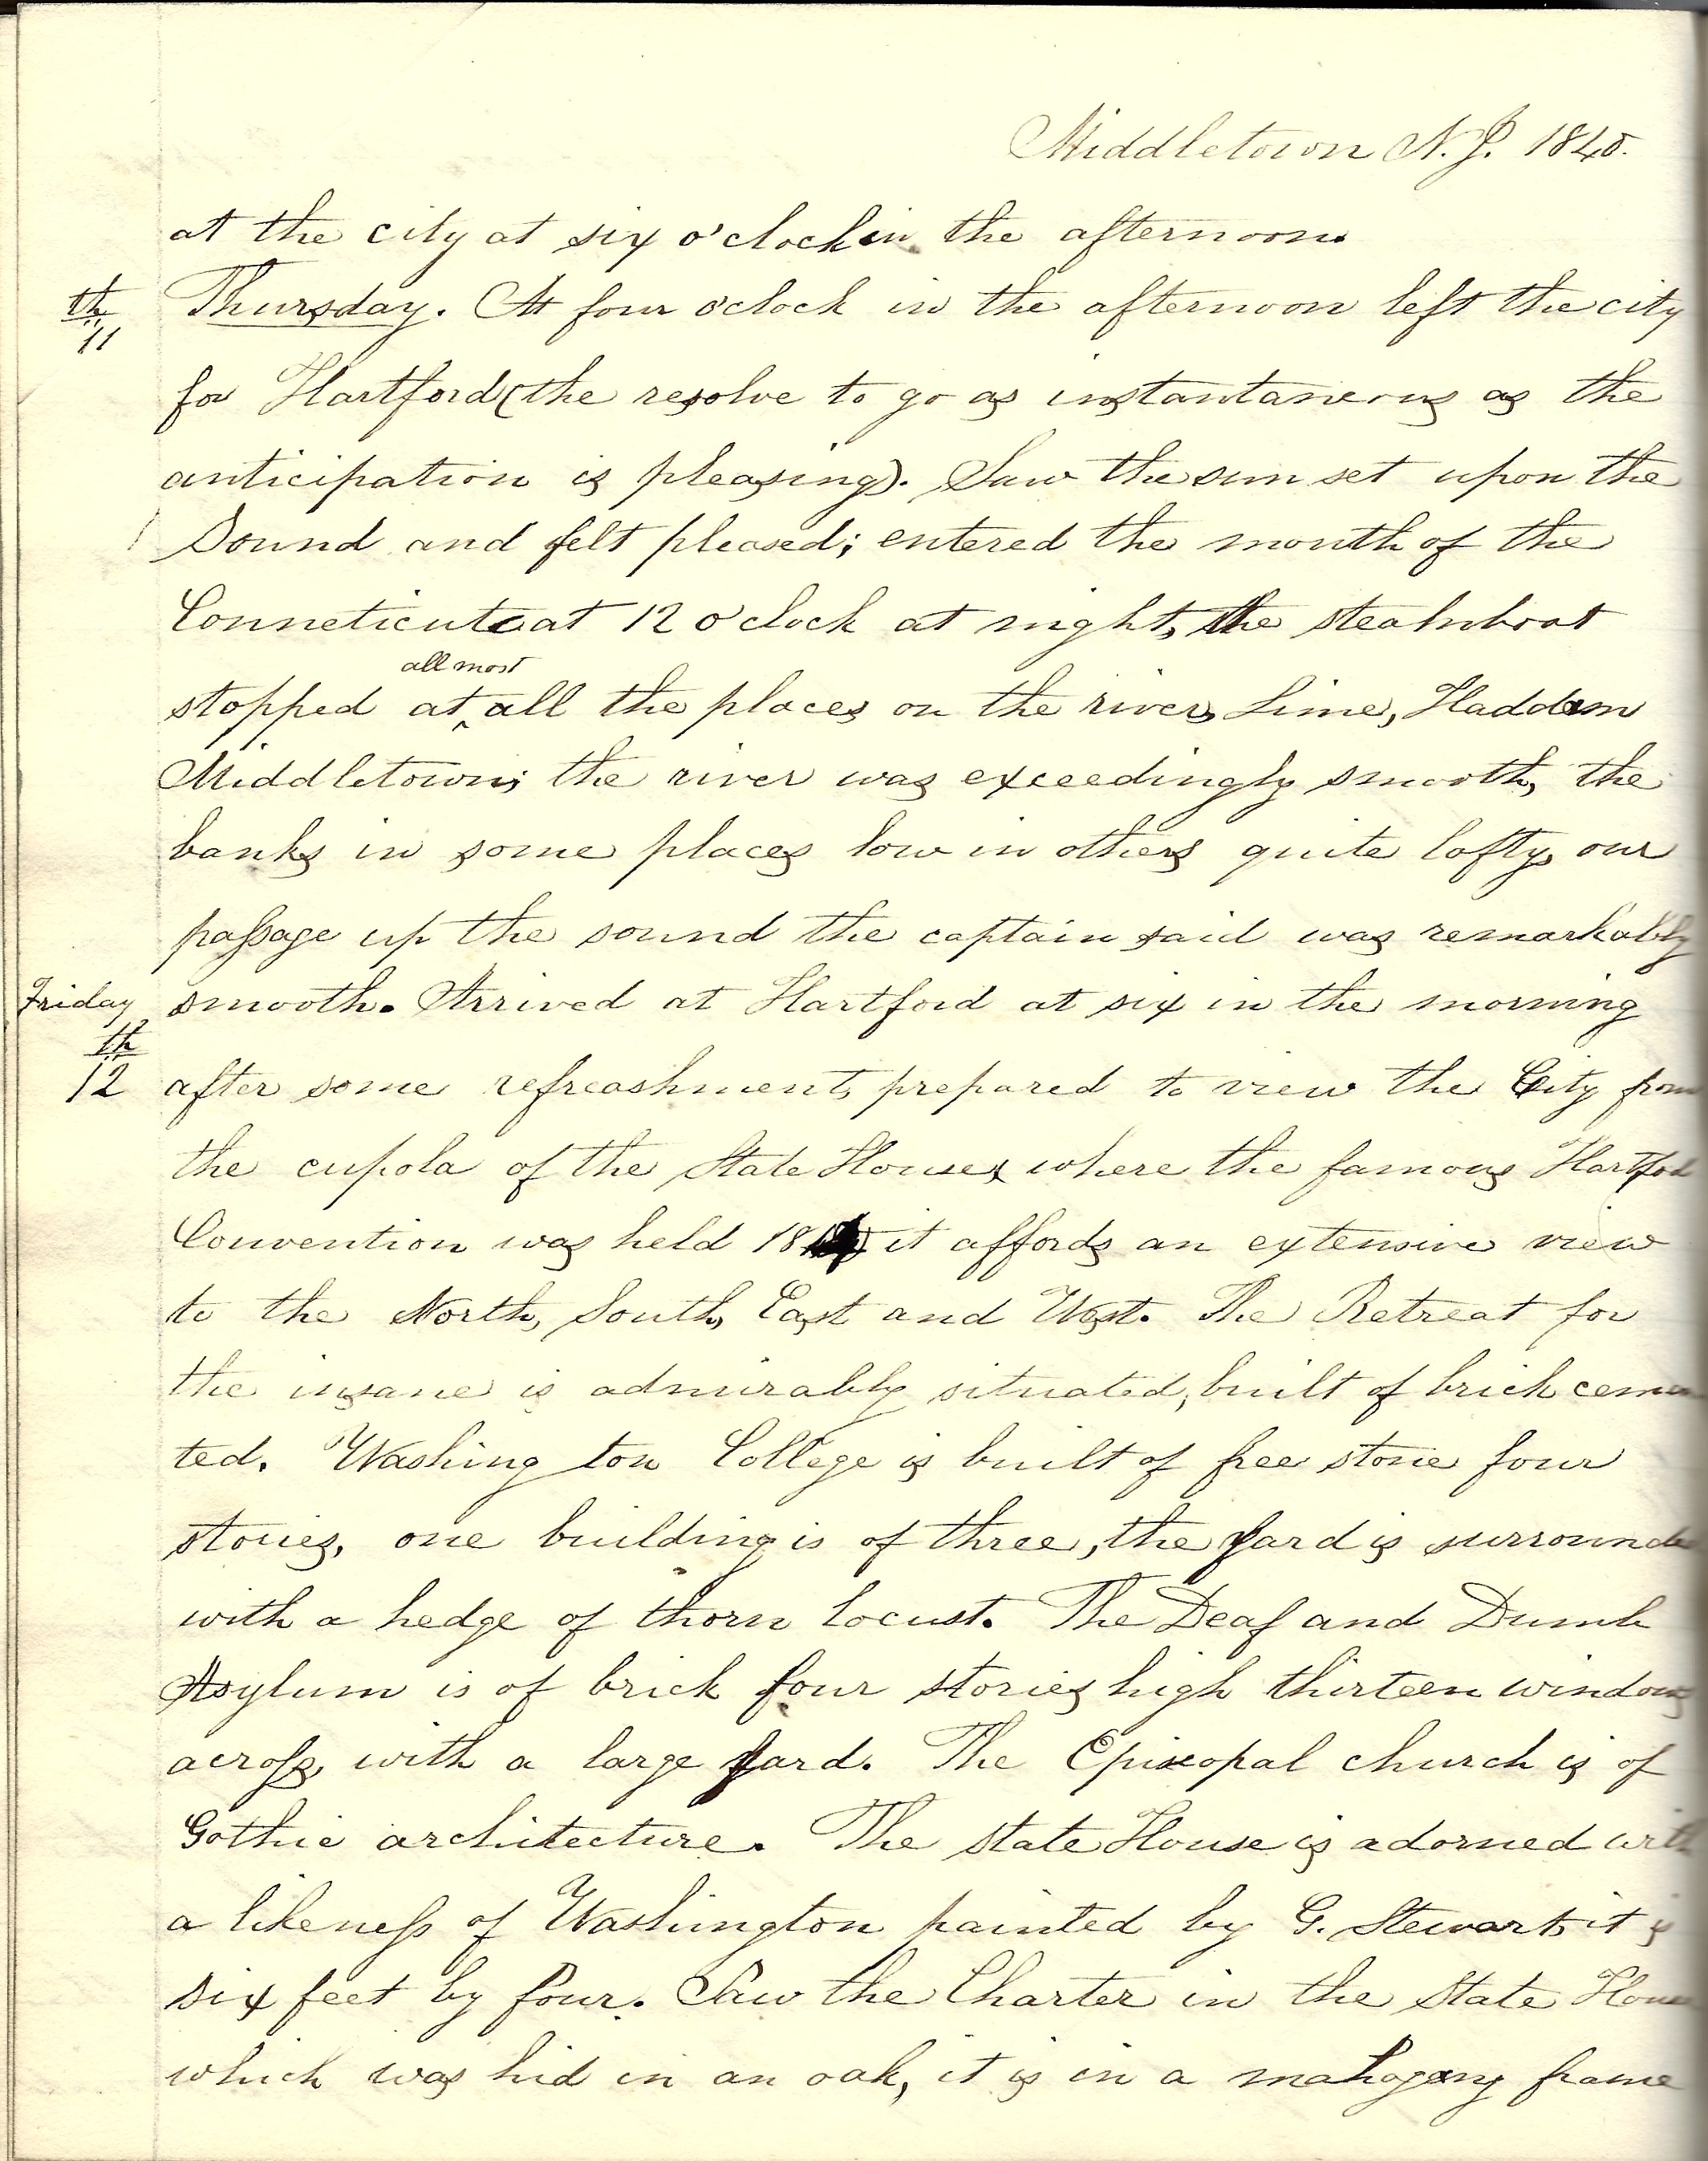 Middletown N.J. 1840.
at the city at six o'clock in the afternoon.
th
11
Thursday. At four o'clock in the afternoon left the city
for Hartford (the resolve to go as instantaneous as the
anticipation is pleasing). Saw the sun set upon the
Sound and felt pleased; entered the mouth of the
Conneticut at 12 o'clock at night, the steamboat
all most
stopped at ^ all the places on the river, Lime, Haddam
Middletown; the river was exceedingly smooth, the
banks in some places low in others quite lofty, our
passage up the sound the captain said was remarkably
Friday
smooth. Arrived at Hartford at six in the morning
th
12
after some refreashment, prepared to view the City from
the cupola of the State House, where the famous Hartford
Convention was held it affords an extensive view
to the North, South, East and West. The Retreat for
the insane is admirably situated, built of brick cemen
ted. Washington College is built of free stone four
stories, one building is of three, the yard is surrounded
with a hedge of thorn locust. The Deaf and Dumb
Asylum is of brick four stories high thirteen windows
across, with a large yard. The Episcopal church is of
Gothic architecture. The State House is adorned with
a likeness of Washington painted by G. Stewart, it is
six feet by four. Saw the Charter in the State House
which was hid in an oak, it is in a mahogany frame